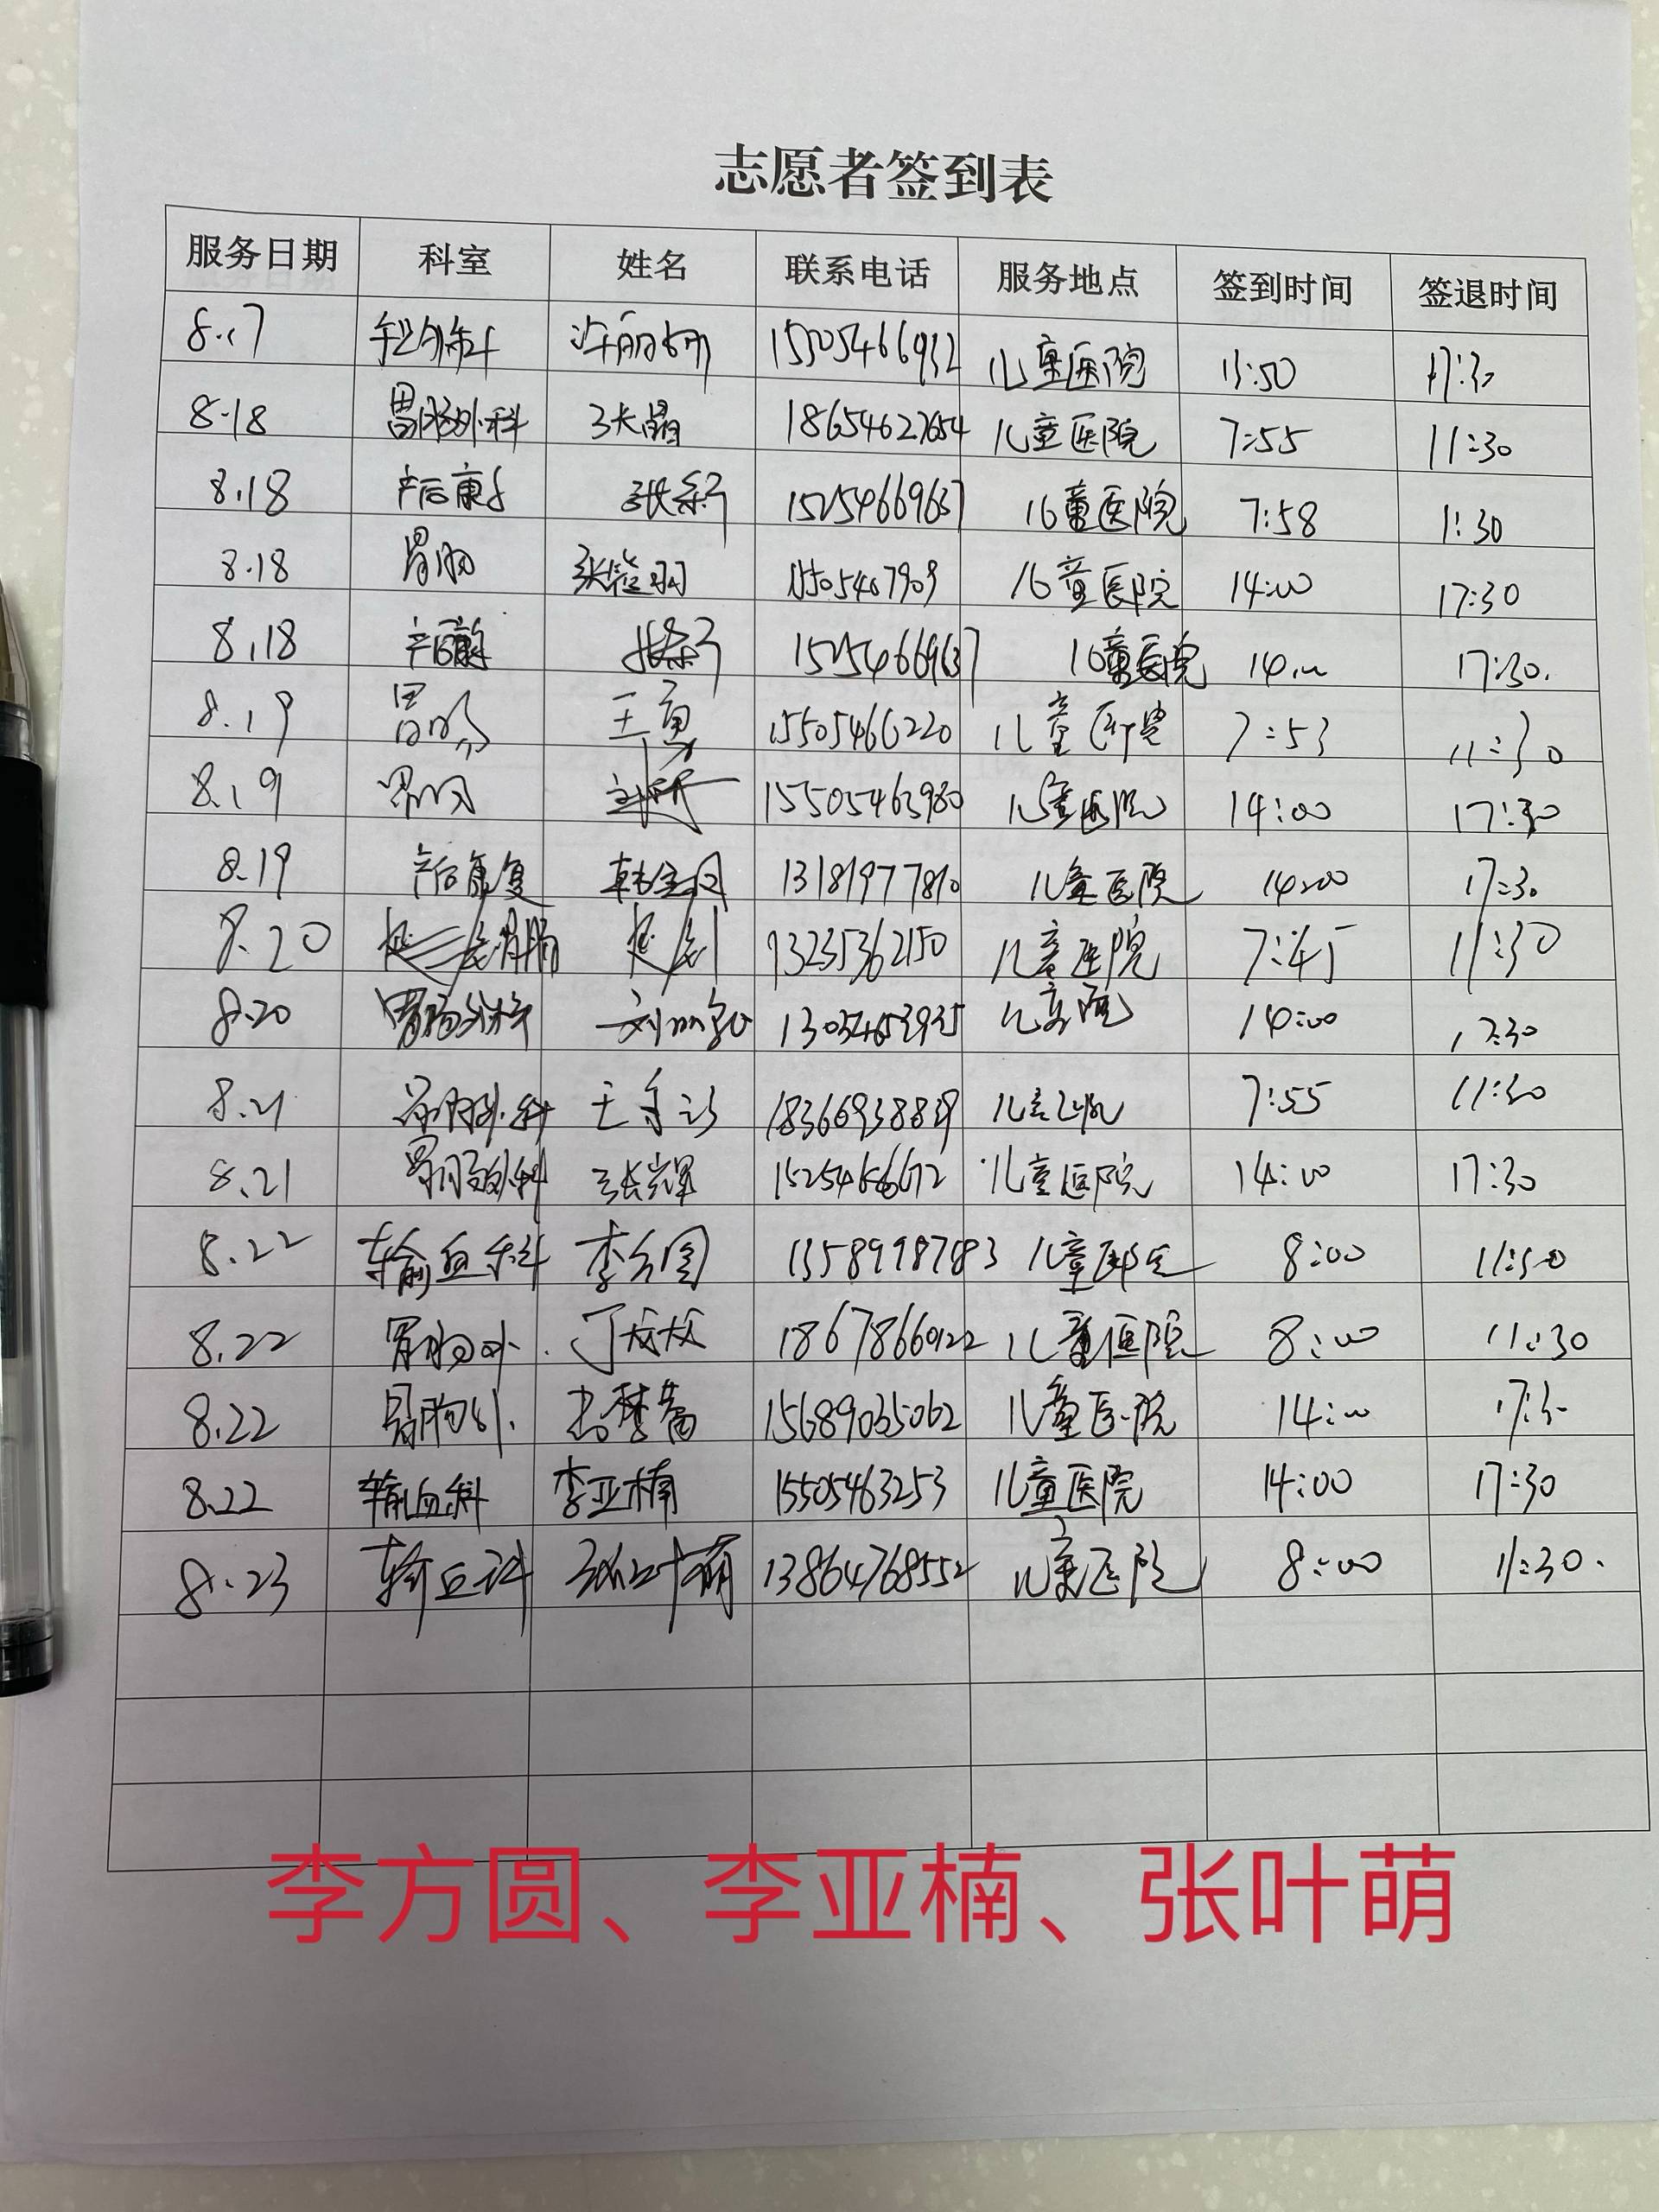 志愿者签到表
服务日期 科室 姓名 联系电话 服务地点 签到时间 签退时间
8.17 15505466932 儿童医院 13:50 17:30
8.18 胃肠外科 张晶 18654627654 儿童医院 7:55 11:30
8.18 产后康复 15254669637 儿童医院 7:58 11:30
8.18 胃肠 儿童医院 14:00 17:30
8.18 产后康复 15254669637 儿童医院 14:00 17:30.
8.19 胃肠 王勇 15505466220 儿童医院 7:53 11:30
8.19 胃肠 15505463980 儿童医院 14:00 17:30
8.19 产后康复 13181977810 儿童医院 14:00 17:30
8.20 胃肠 13235362150 儿童医院 7:45 11:30
8.20 胃肠外科 儿童医院 14:00 17:30
8.21 胃肠外科 18366938839 7:55 11:30
8.21 胃肠外科 张辉 儿童医院 14:00 17:30
8.22 输血科 李方圆 儿童医院 8:00 11:30
8.22 胃肠外. 丁炊炊 儿童医院 8:00 11:30
8.22 胃肠外. 15689035062 儿童医院 14:00 17:30
8.22 输血科 李亚楠 15505463253 儿童医院 14:00 17:30
8.23 输血科 张叶萌 13864768552 儿童医院 8:00 11:30.
李方圆、李亚楠、张叶萌